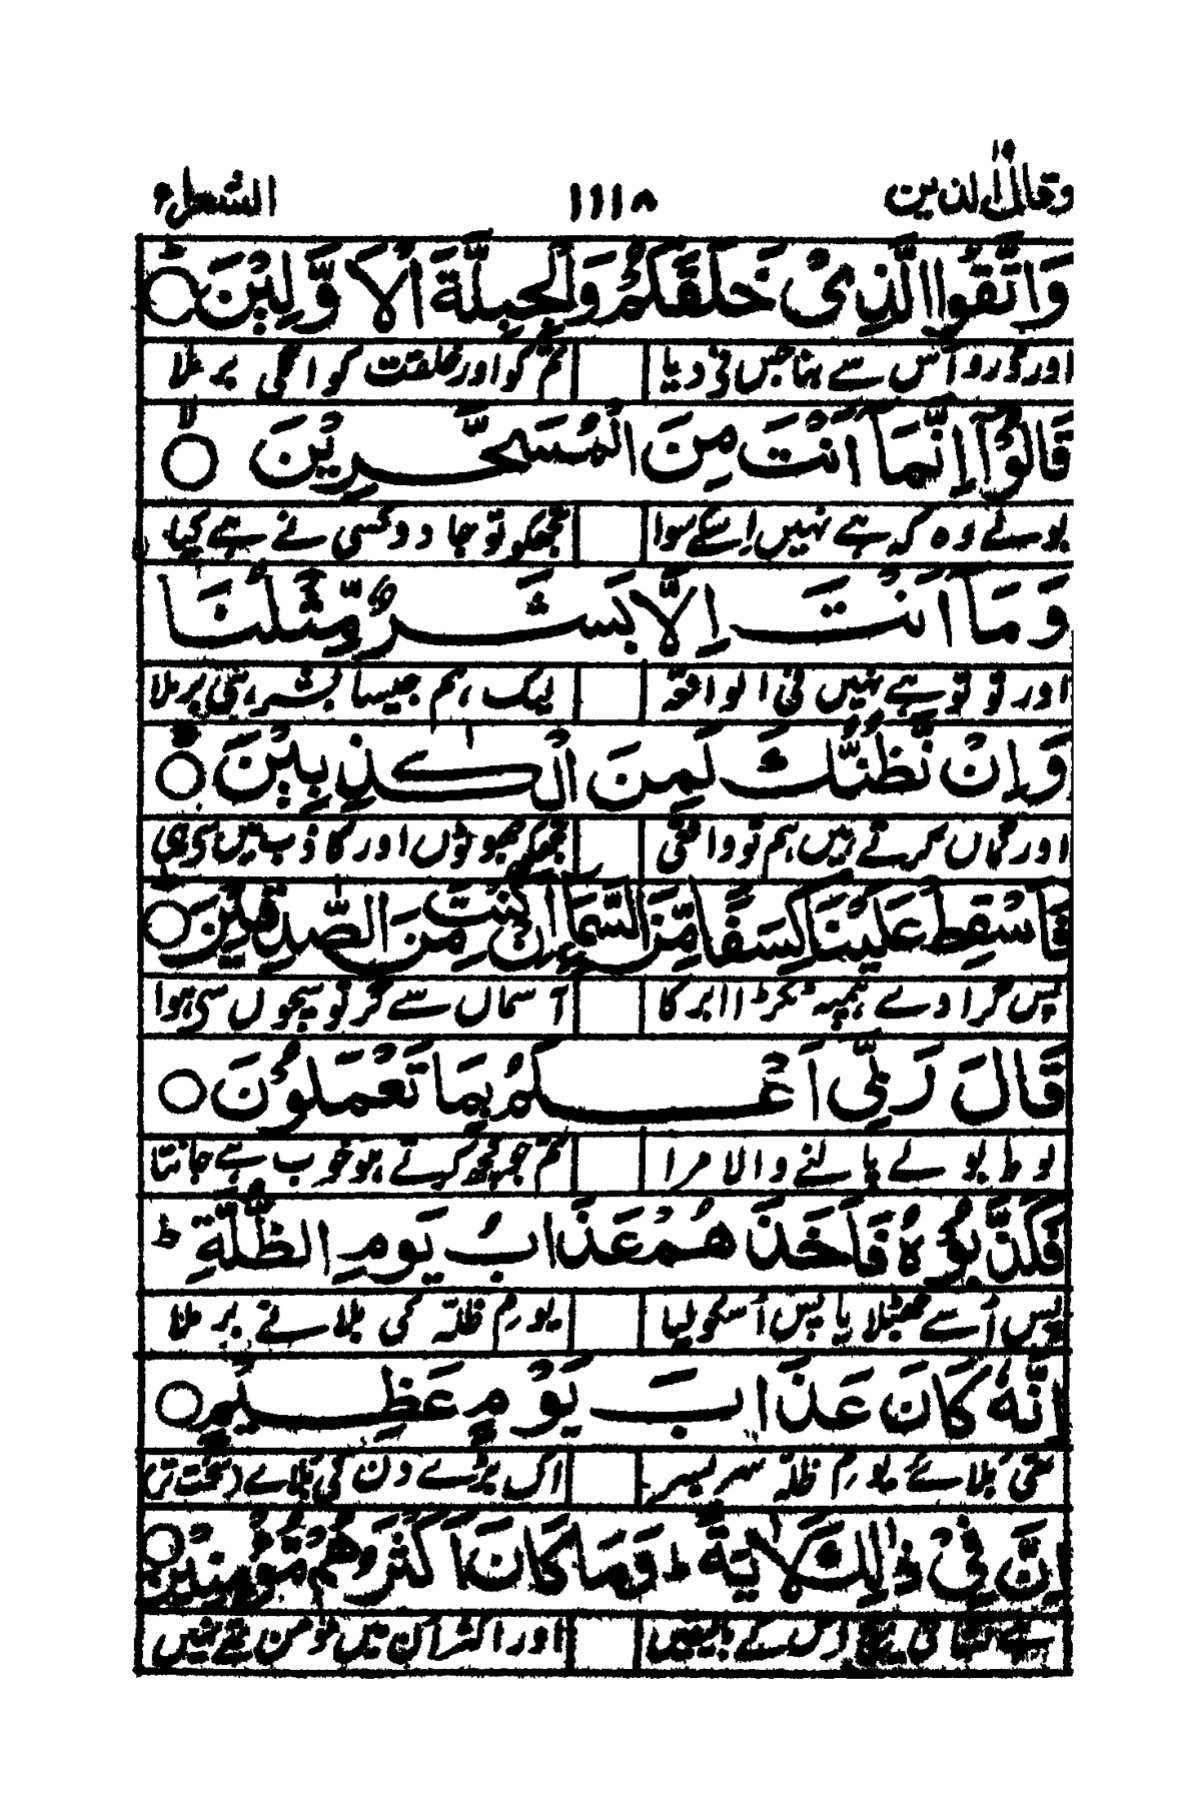 وقال الذین ۱۹ ۱۱۱۸ الشعراء
وَاتَّقُوا الَّذِیْ خَلَقَكُمْ وَالْجِبِلَّةَ الْاَوَّلِیْنَ ○ ط
اور ڈرو اُس سے بنا جس نی دیا تم کو اور خلقت کو اگلی بر ملا
قَالُوْۤا اِنَّمَاۤ اَنْتَ مِنَ الْمُسَحَّرِیْنَ ○ لا
بولے وہ کہ ہے نہیں اِسکے سوا تجھکو تو جادو کسی نے ہے کیا
وَمَاۤ اَنْتَ اِلَّا بَشَرٌ مِّثْلُنَا
اور تو تو ہے نہیں فی الواقعہ لیک، ہم جیسا بشر، ہی بر ملا
وَاِنْ نَّظُنُّكَ لَمِنَ الْكٰذِبِیْنَ ○
اور گماں کرتے ہیں ہم تو واقعی تجھکو جھوٹوں اور کاذب میں سی ہی
فَاَسْقِطْ عَلَیْنَا كِسَفًا مِّنَ السَّمَآءِ اِنْ كُنْتَ مِنَ الصّٰدِقِیْنَ ○
پس گرا دے ہمپہ ٹکڑا ابر کا آسماں سے گر تو سچوں سی ہوا
قَالَ رَبِّیْۤ اَعْلَمُ بِمَا تَعْمَلُوْنَ ○
لوط بولے پالنے والا مرا تم جو کچھ کرتے ہو خوب ہے جانتا
فَكَذَّبُوْهُ فَاَخَذَهُمْ عَذَابُ یَوْمِ الظُّلَّةِ ط
پس اُسے جھٹلایا پس اُسکو لیا یومِ ظلّہ کی بلا نے بر ملا
اِنَّهٗ كَانَ عَذَابَ یَوْمٍ عَظِیْمٍ ○
تھی بلائے یومِ ظلّہ سر بسر اک بڑے دن کی بلاے (سخت تر
اِنَّ فِیْ ذٰلِكَ لَاٰیَةً ط وَمَا كَانَ اَكْثَرُهُمْ مُّؤْمِنِیْنَ ○
ہے نشانی بیچ اس کے بالیقیں اور اکثر اُن میں مومن تھے نہیں